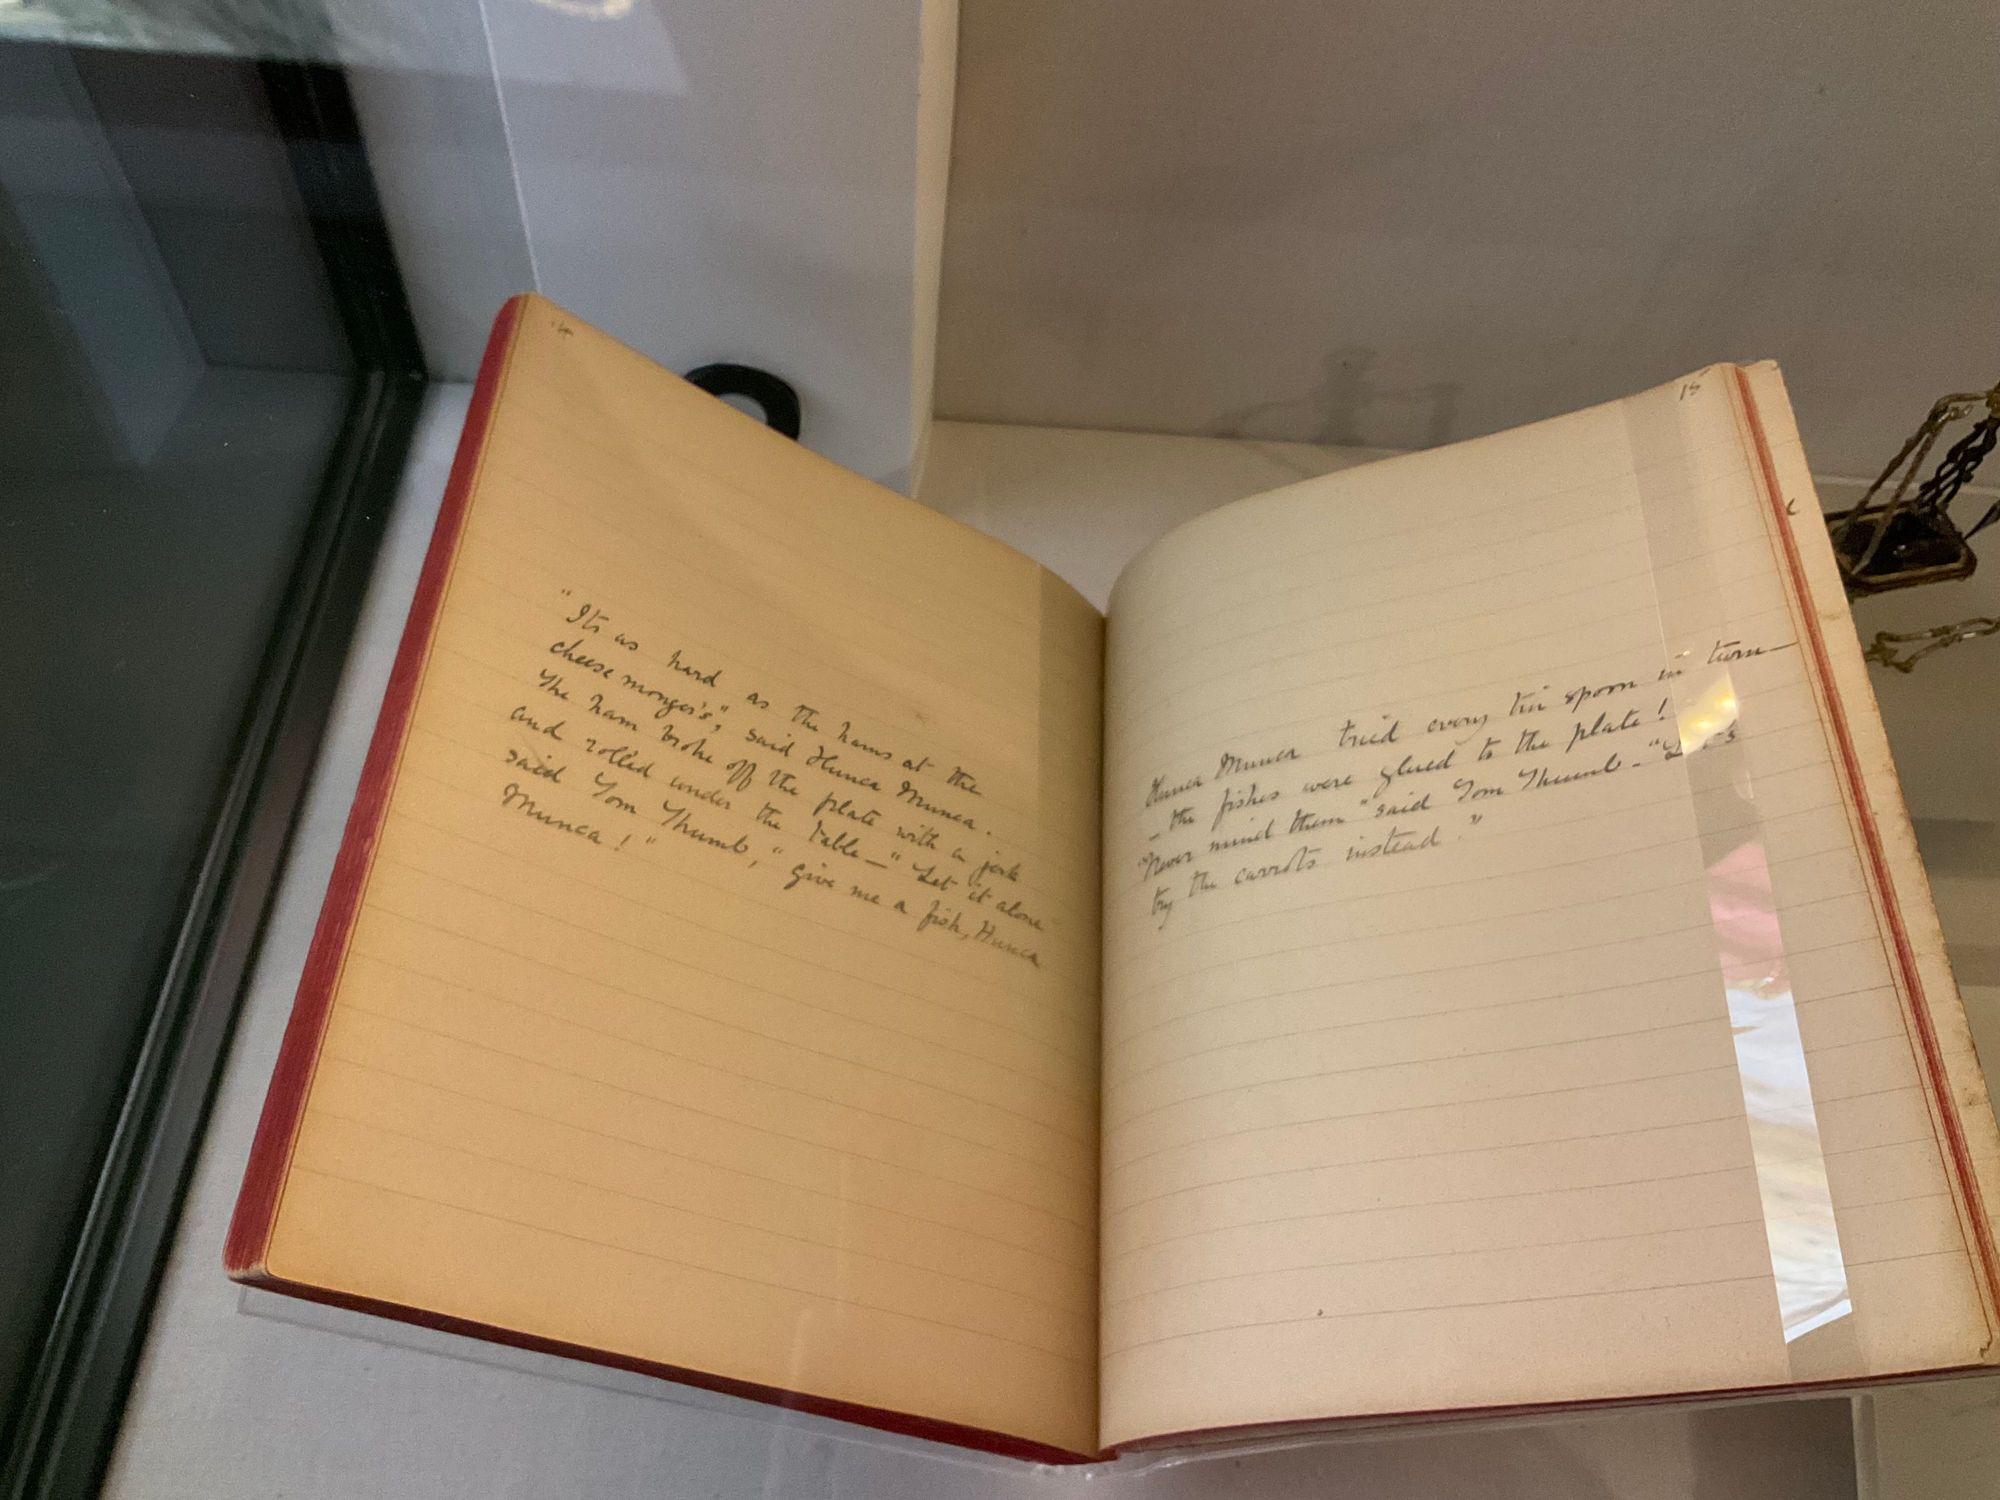 14
"Its as hard as the hams at the
cheesemonger's," said Hunca Munca.
The ham broke off the plate with a jerk
and rolled under the table — "Let it alone"
said Tom Thumb, "give me a fish, Hunca
Munca!"
15
Hunca Munca tried every tin spoon in turn —
— the fishes were glued to the plate!
"Never mind them" said Tom Thumb — "Let's
try the carrots instead."